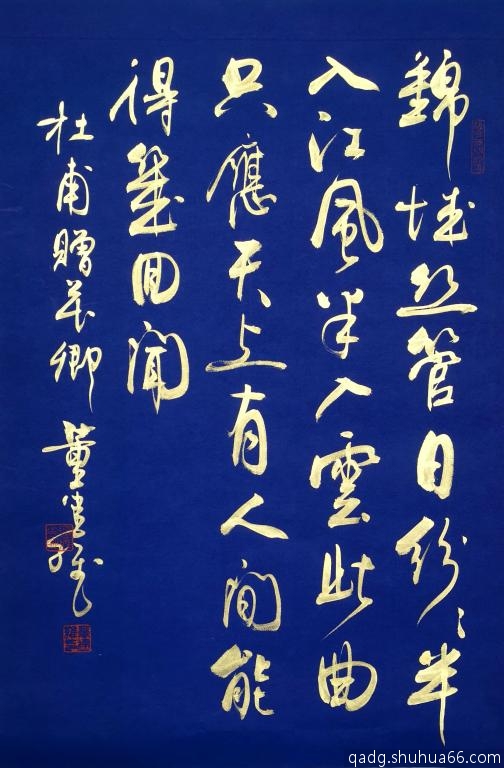 錦城丝管日紛〻半
入江風半入雲此曲
只應天上有人間能
得幾回聞
杜甫贈花卿 董
qadg.shuhua66.com